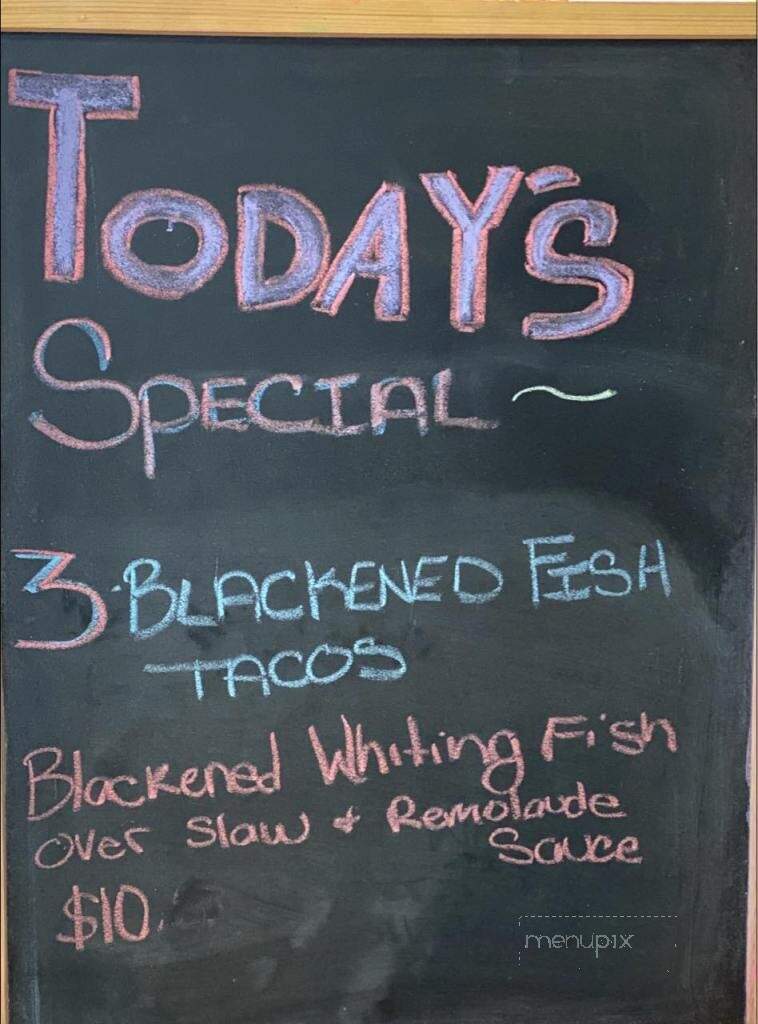 TODAY'S
SPECIAL ~
3 · BLACKENED FISH
TACOS
Blackened Whiting Fish
over Slaw + Remolaude
Sauce
$10.
menupix